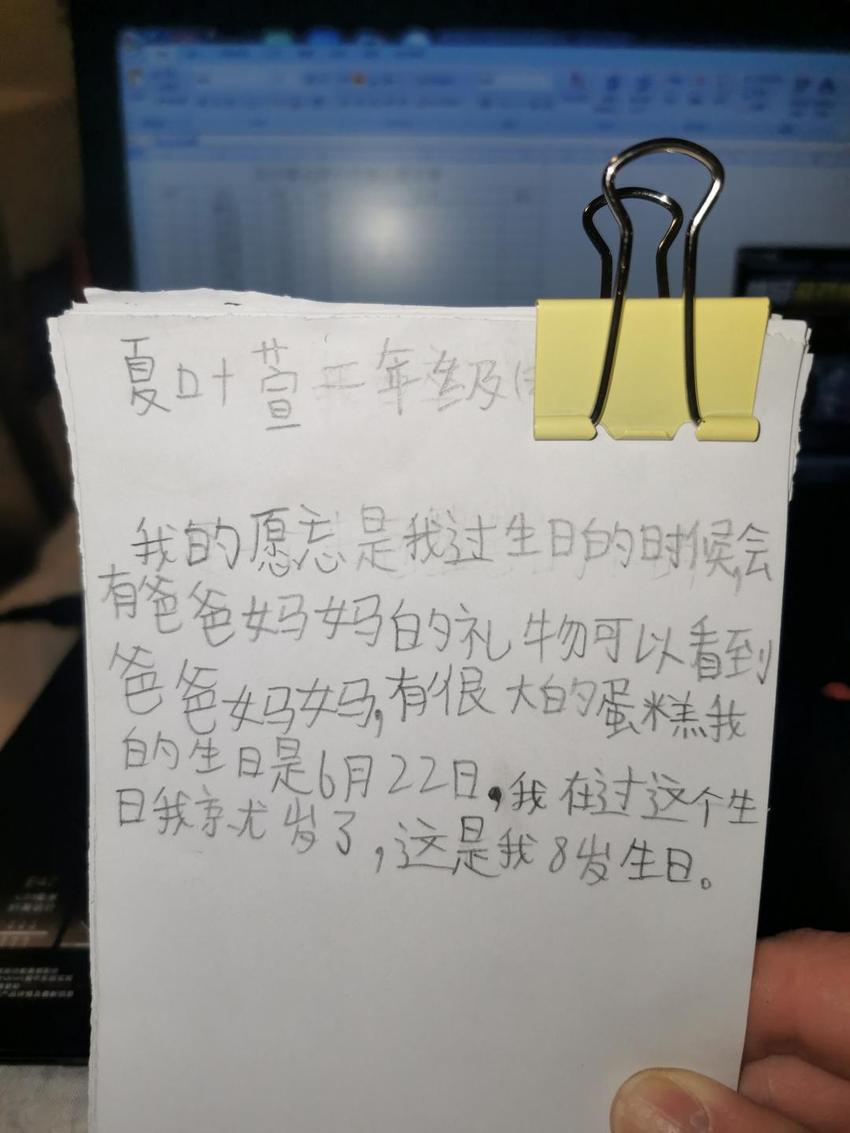 夏叶萱 二年级
我的愿忘是我过生日的时候,会
有爸爸妈妈的礼物可以看到
爸爸妈妈,有很大的蛋糕我
的生日是6月22日,我在过这个生
日我就岁了,这是我8岁生日。